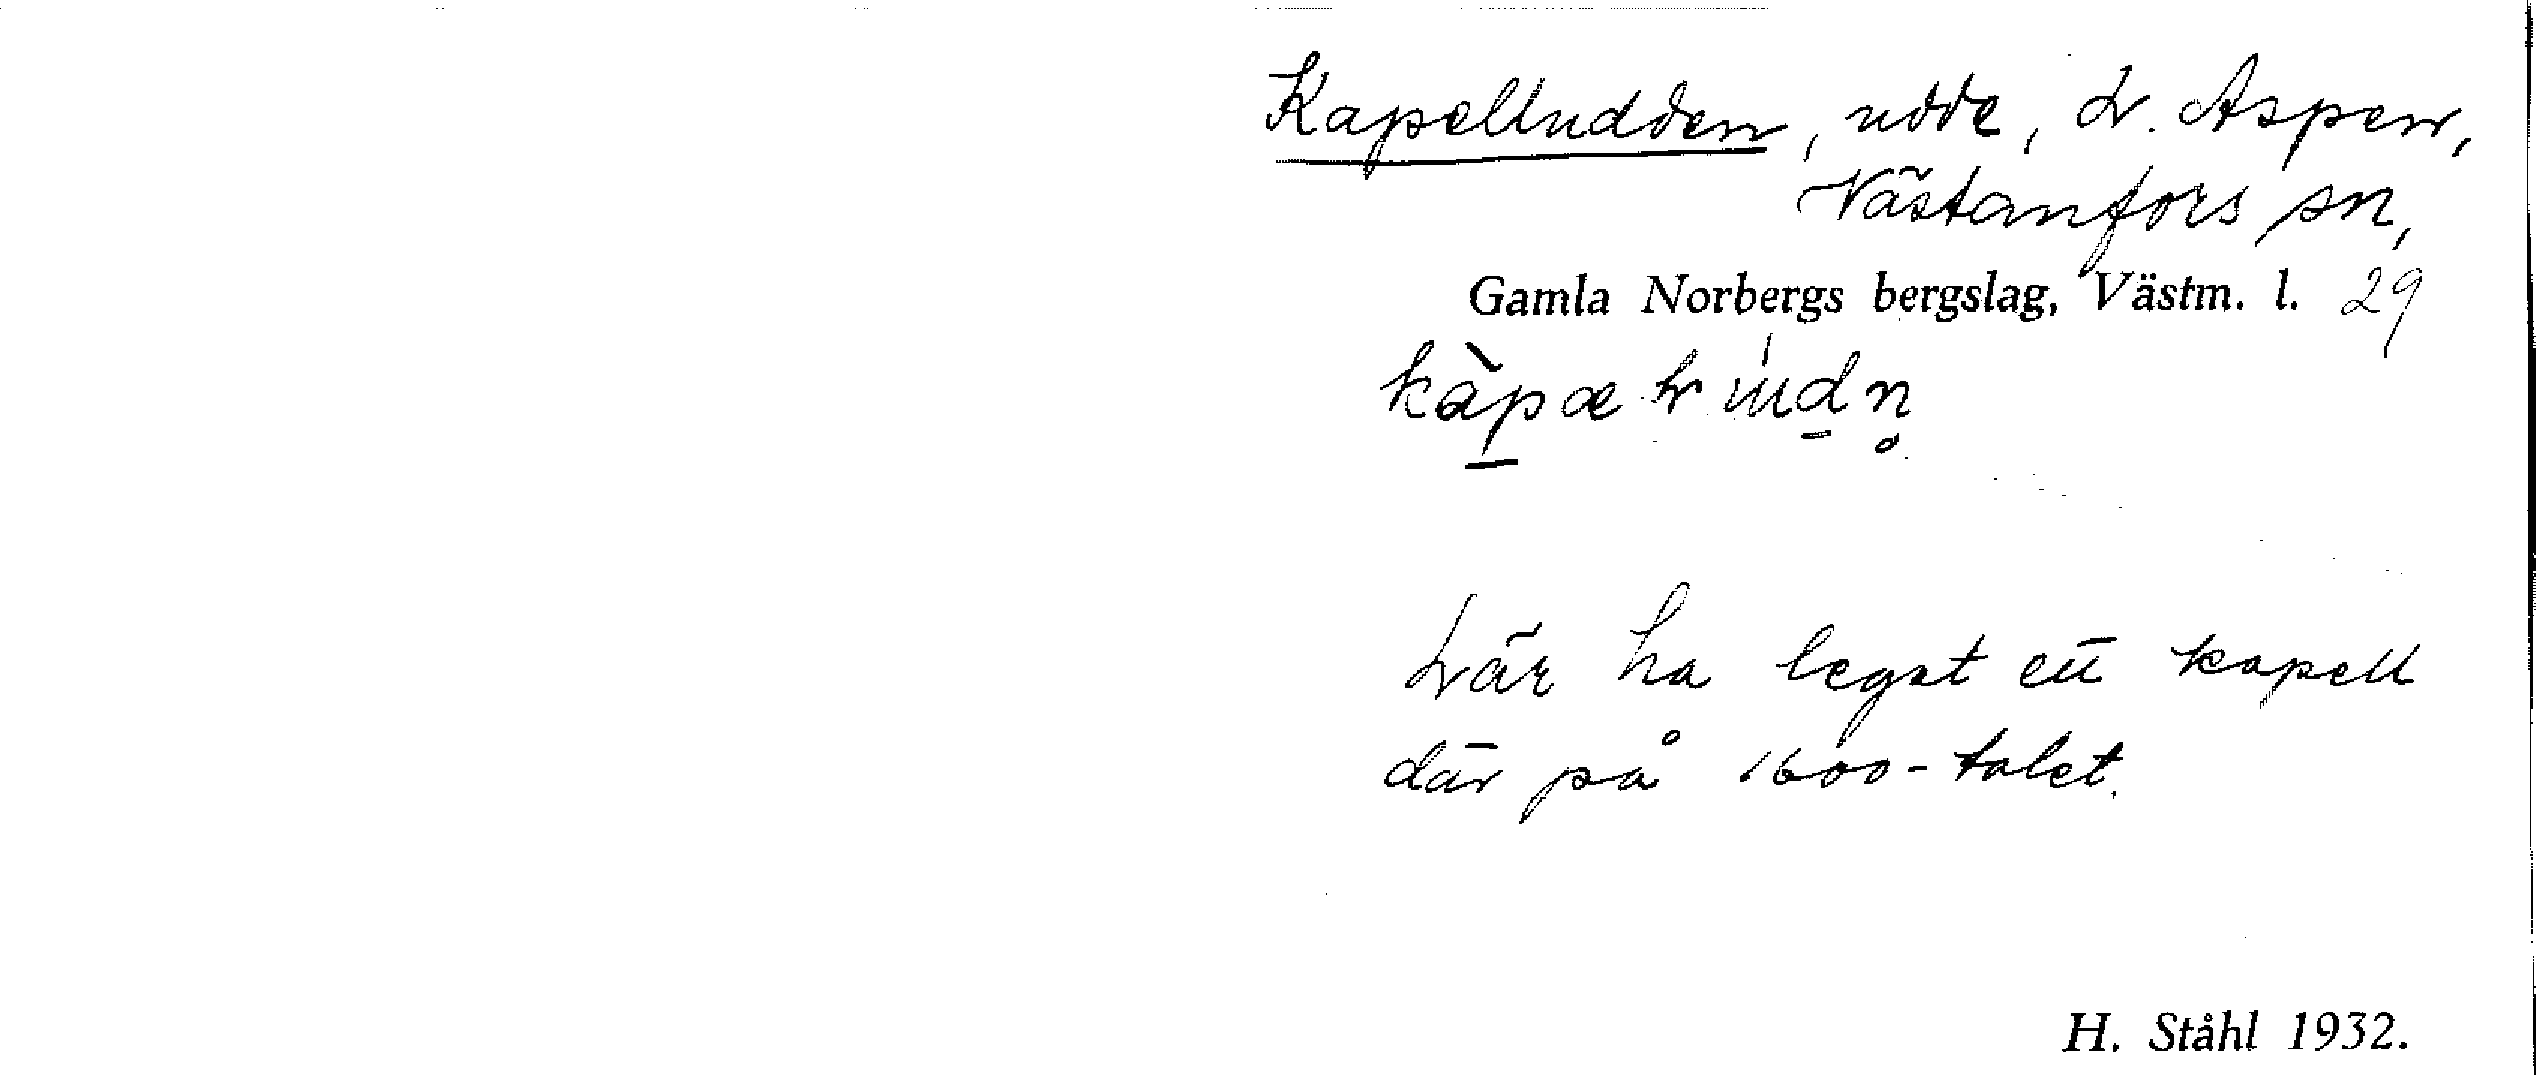 Kapelludden, udde, L. Aspen,
Västanfors sn,
Gamla Norbergs bergslag, Västm. l. 29
Lär ha legat ett kapell
där på 1600-talet.
H. Ståhl 1932.